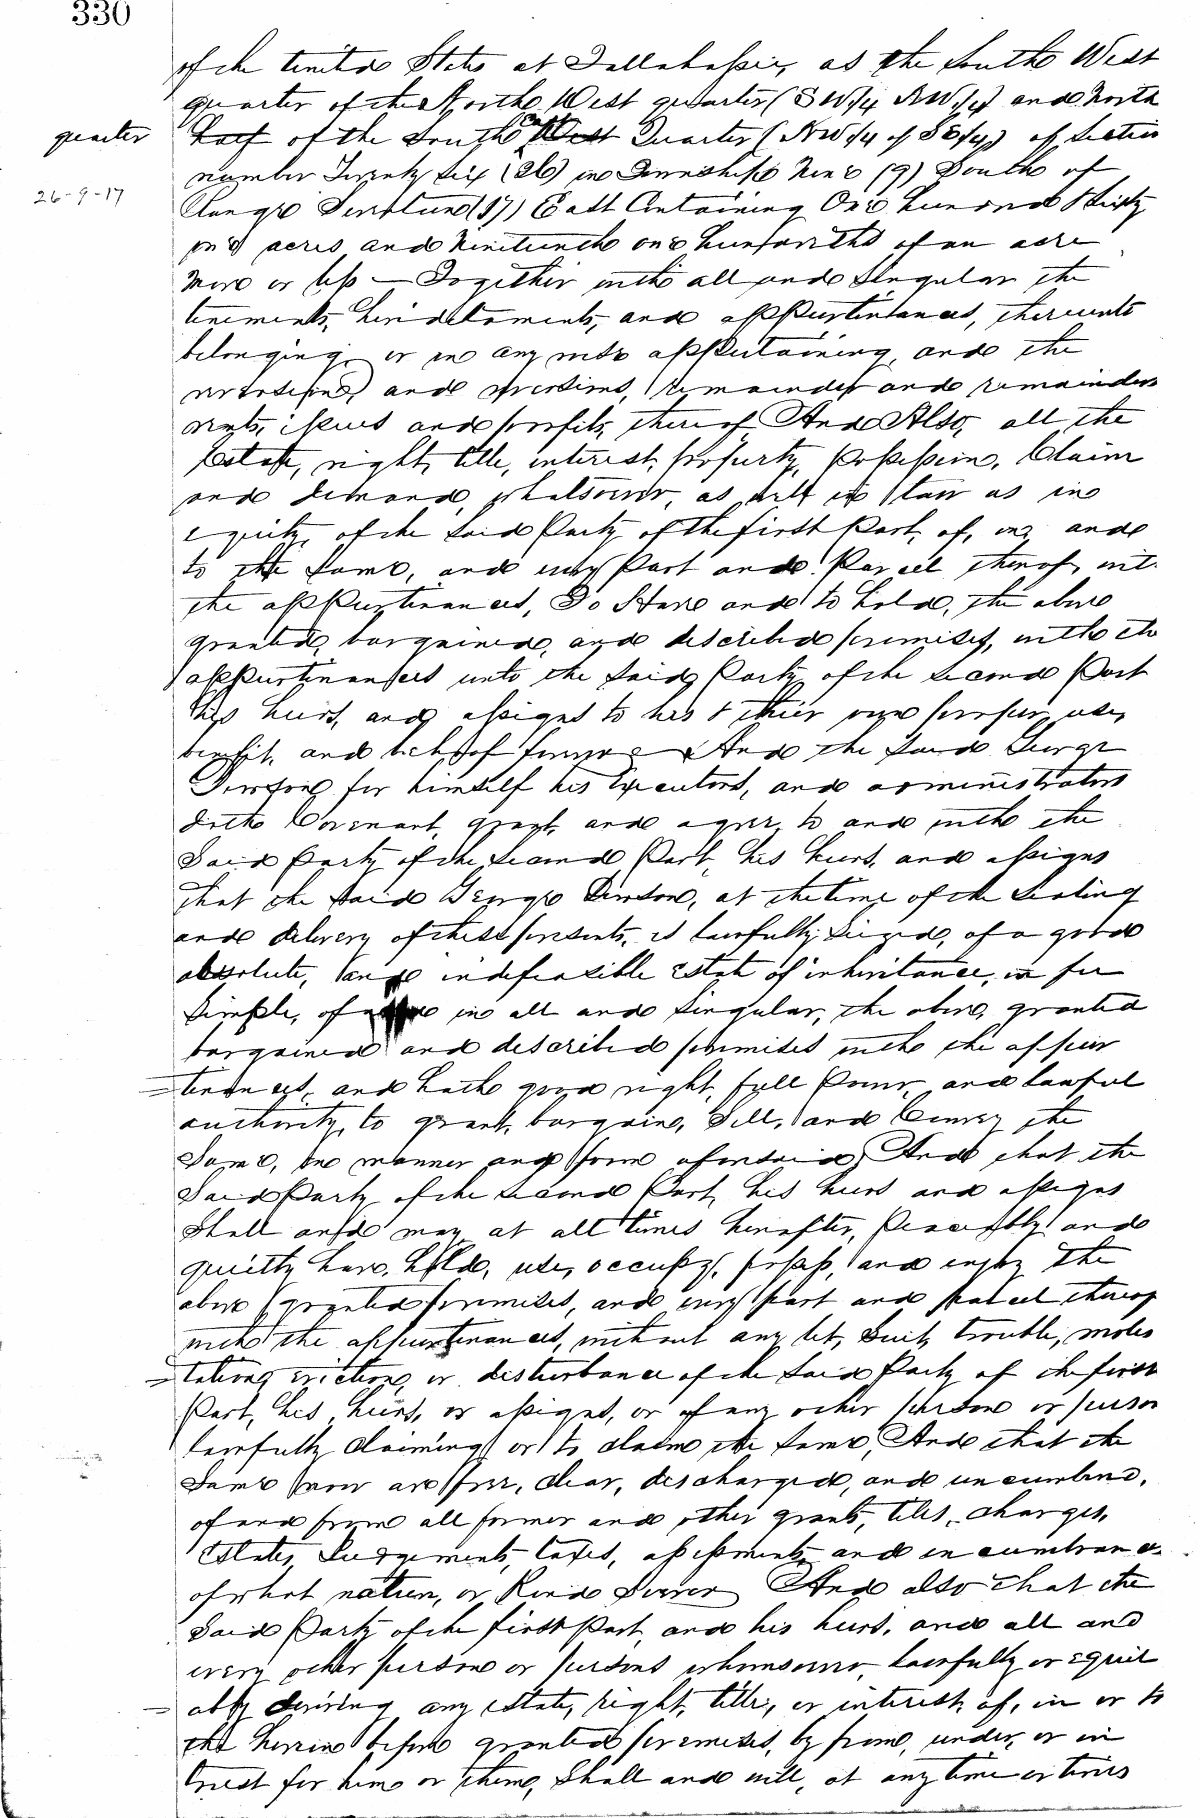 330
of the United States at Tallahassee, as the South West
quarter of the North West quarter (SW/4 NW/4) and North
quarter Half of the South East West Quarter (NW/4 of SE/4) of Section
number Twenty Six (26) in Township Nine (9) South of
26-9-17
Range Seventeen (17) East Containing One hundred & thirty
one acres and Nineteenth one hundredths of an acre
more or less — Together with all and Singular the
tenements, hereditaments, and appurtenances, thereunto
belonging or in any wise appertaining, and the
reversion and reversions, remainder and remainders
rents, issues and profits thereof, And Also, all the
Estate, right, title, interest, property, possession, Claim
and demand, whatsoever, as well in law as in
equity, of the Said Party of the first Part, of, in, and
to the Same, and every Part and Parcel thereof, with
the appurtenances, To Have and to hold, the above
granted, bargained, and described premises, with the
appurtenances unto the Said Party of the second Part
his heirs, and assigns to his & their own proper use,
benefit, and behoof forever And the Said George
for himself his Executors, and administrators
doth Covenant, grant, and agree, to and with the
Said Party of the second Part, his heirs, and assigns
that the Said George at the time of the Sealing
and delivery of these presents, is lawfully Seized, of a good
absolute, and indefeasible Estate of inheritance, in fee
Simple, of in all and Singular, the above granted
bargained and described premises with the appur
=tenances, and hath good right, full Power, and lawful
authority, to grant, bargain, Sell, and Convey the
Same, in manner and form aforesaid, And that the
Said Party of the second Part, his heirs and assigns
Shall and may at all times hereafter, Peaceably and
quietly have, hold, use, occupy, possess, and enjoy the
above granted premises, and every part and parcel thereof
with the appurtenances, without any let, Suit, trouble, moles
=tation, eviction, or disturbance of the Said Party of the first
Part, his heirs, or assigns, or of any other person or person
lawfully Claiming or to claim the Same, And that the
Same now are free, clear, discharged, and unencumbered,
of and from all former and other grants, titles, charges,
Estates, Judgements, taxes, assessments, and in cumbrances
of what nature, or Kind Soever And also that the
Said Party of the first Part, and his heirs, and all and
every other person or persons whomsoever, lawfully or equit
=ably deriving any estate, right, title, or interest of, in or to
the herein before granted premises, by from, under, or in
trust for him or them, Shall and will, at any time or times